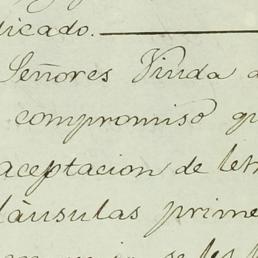 dicado.
Señores Viuda d
compromiso qu
aceptacion de let
láusulas prime